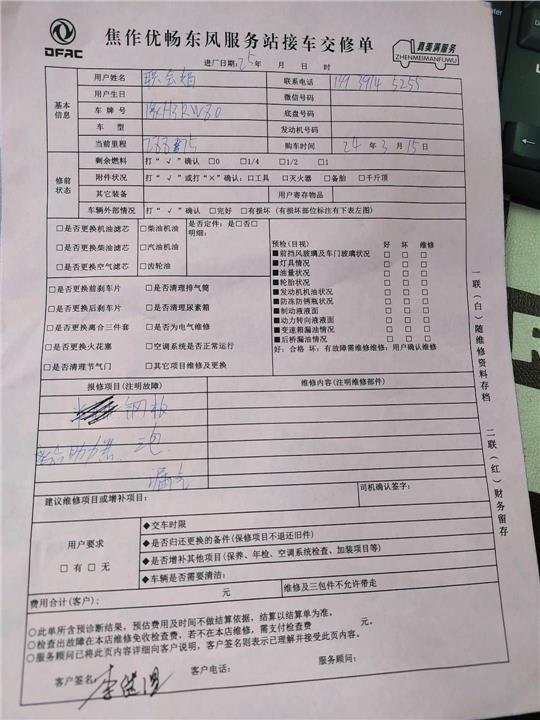 DFAC
焦作优畅东风服务站接车交修单
真美满服务
ZHENMEIMANFUWU
进厂日期: 25年 月 日 时
基本信息
用户姓名 联系电话
用户生日 微信号码
车牌号 底盘号码
车型 发动机号码
当前里程 购车时间 24年3月15日
修前状态
剩余燃料 打“√”确认 □0 □1/4 □1/2 □1
附件状况 打“√”或打“×”确认:□工具 □灭火器 □备胎 □千斤顶
其它装备 用户寄存物品
车辆外部情况 打“√”确认 □完好 □有损坏(有损坏部位标注有下表左图)
□是否更换机油滤芯 □柴油机油 是否定件:是□否□
明细:
□是否更换柴油滤芯 □汽油机油
□是否更换空气滤芯 □齿轮油
□是否更换前刹车片 □是否清理排气筒
□是否更换后刹车片 □是否清理尿素箱
□是否更换离合三件套 □是否为电气维修
□是否更换火花塞 □空调系统是否正常运行
□是否清理节气门 □其它项目维修及更换
预检(目视) 好 坏 维修
■前挡风玻璃及车门玻璃状况 □ □ □
■灯具情况 □ □ □
■油量状况 □ □ □
■轮胎状况 □ □ □
■发动机机油状况 □ □ □
■防冻防锈瓶状况 □ □ □
■制动液液面 □ □ □
■动力转向液液面 □ □ □
■变速箱漏油情况 □ □ □
■后桥漏油情况 □ □ □
好:合格 坏:有故障需维修维修:用户确认维修
报修项目(注明故障) 维修内容(注明维修部件)
钢板
助力器
漏气
建议维修项目或增补项目: 司机确认签字:
用户要求
□有□无
◆交车时限
◆是否归还更换的备件(保修项目不退还旧件)
◆是否增补其他项目(保养、年检、空调系统检查、加装项目等)
◆车辆是否需要清洁:
费用合计(客户): 元 维修及三包件不允许带走
○此单所含预诊断结果,预估费用及时间不做结算依据,结算以结算单为准。
○检查出故障在本店维修免收检查费,若不在本店维修,需支付检查费 元。
○服务顾问已将此页内容详细向客户说明,客户签名则表示已理解并接受此页内容。
客户签名: 客户电话: 服务顾问:
一联(白)随维修资料存档
二联(红)财务留存